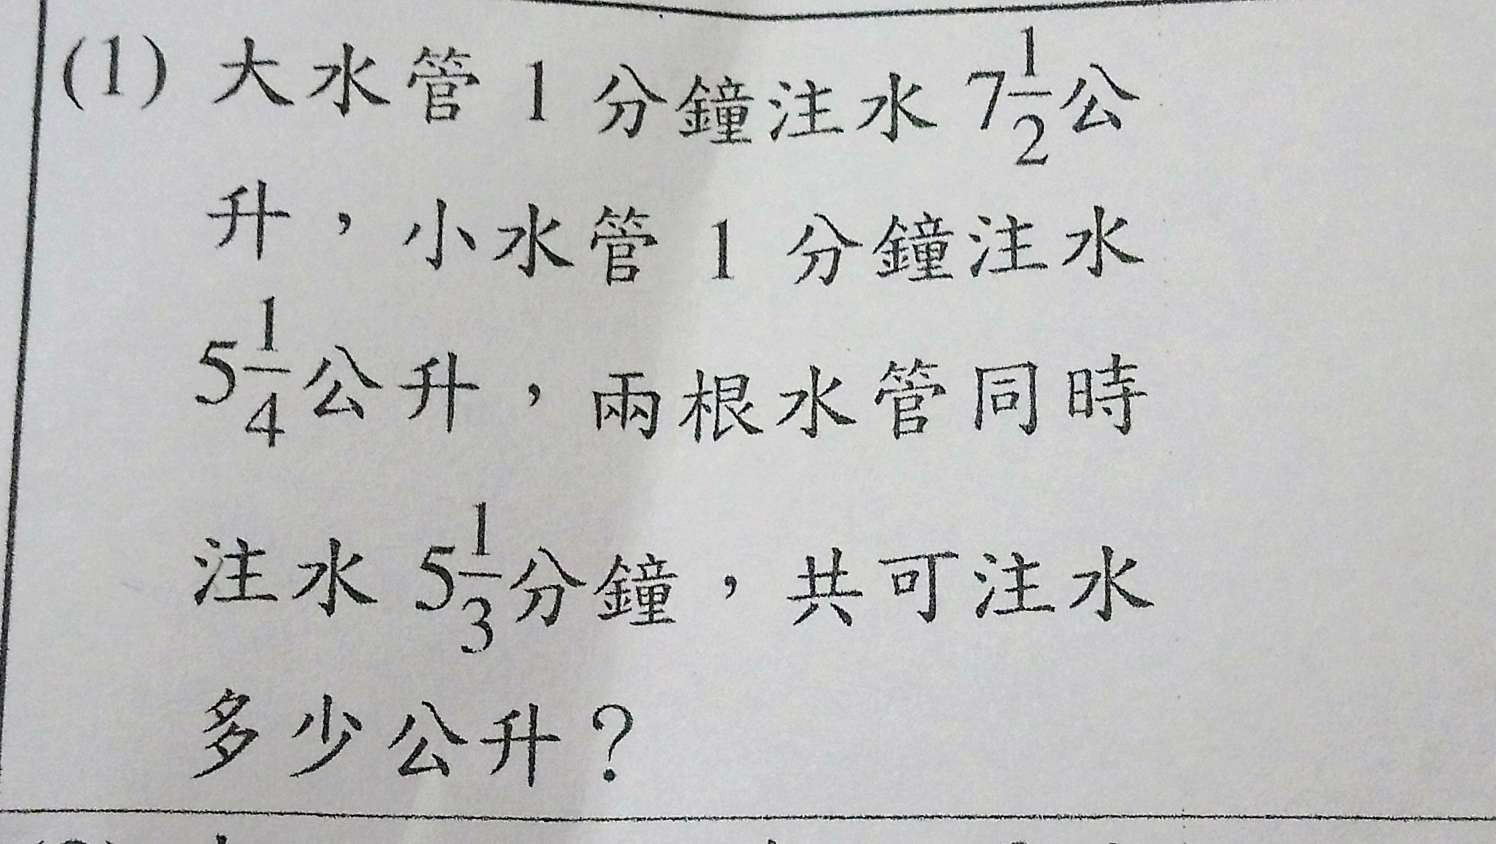 (1) 大水管 1 分鐘注水 7 1/2 公
升，小水管 1 分鐘注水
5 1/4 公升，兩根水管同時
注水 5 1/3 分鐘，共可注水
多少公升？